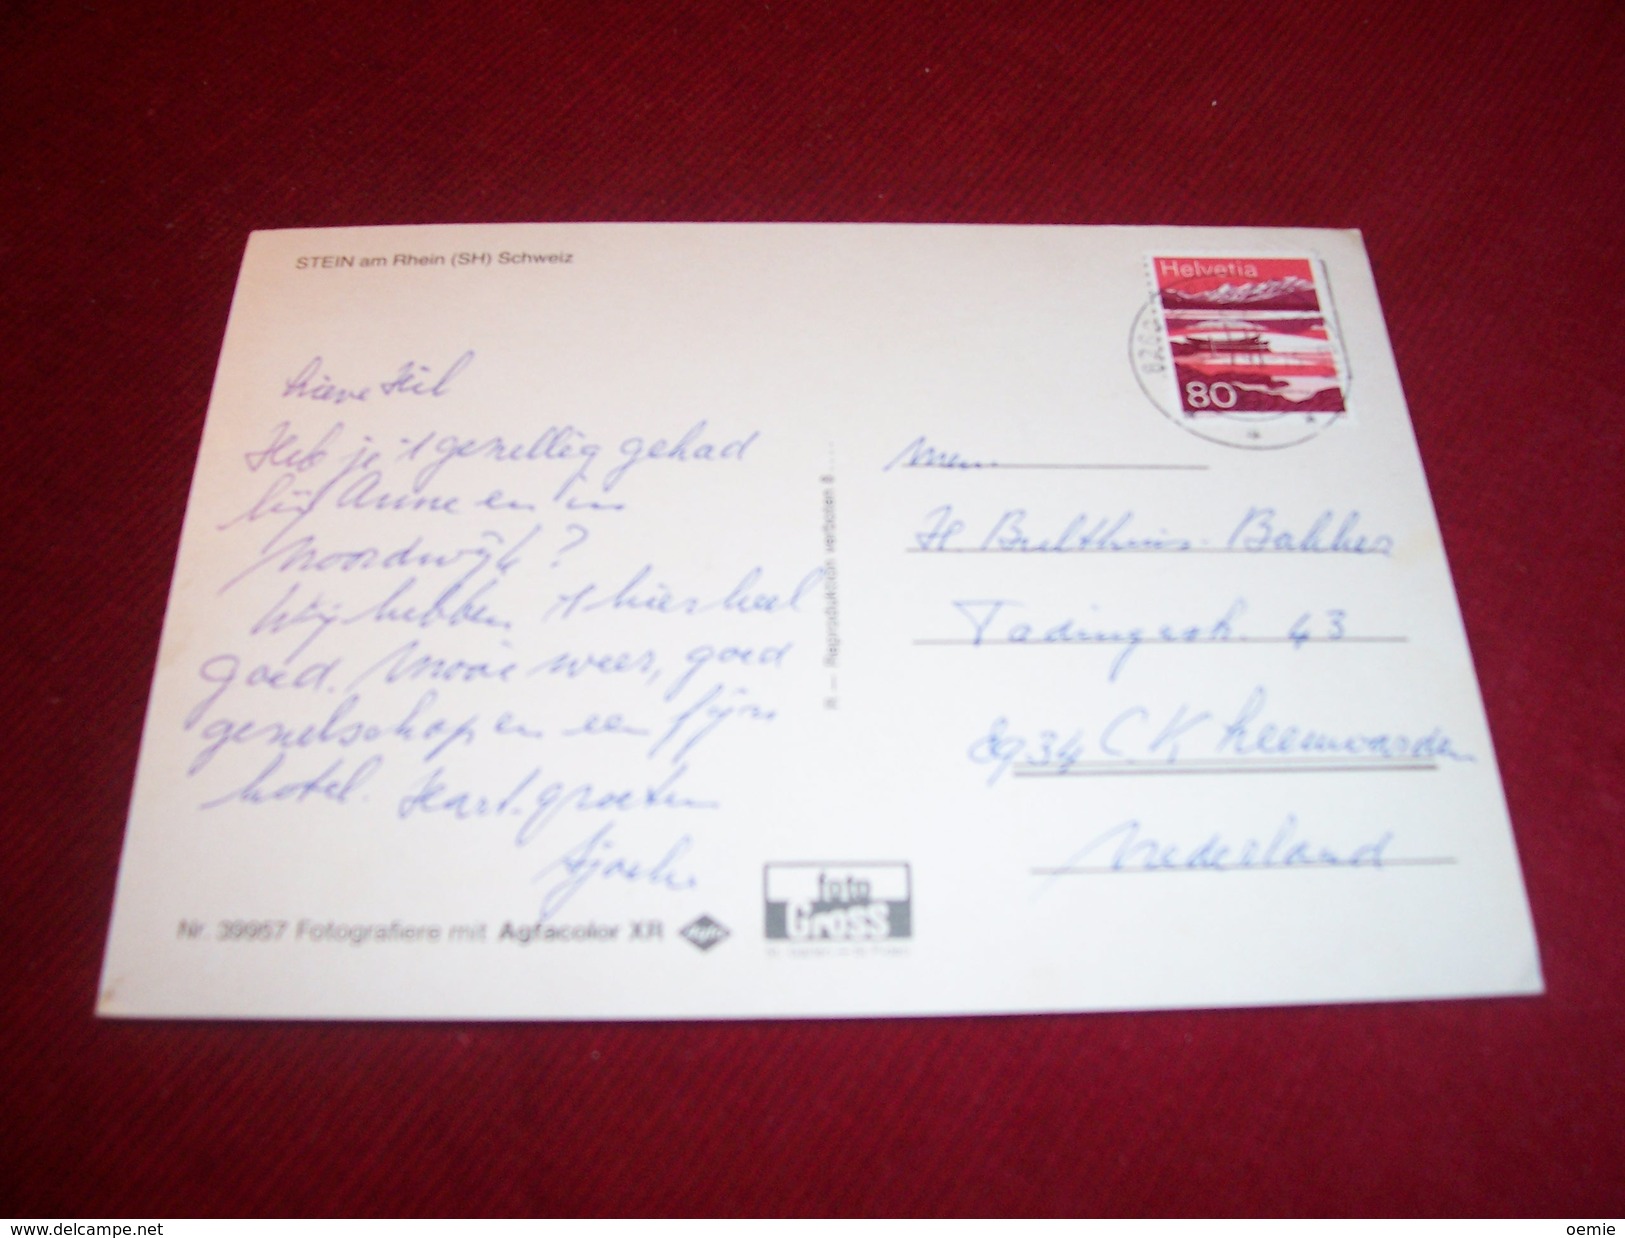 STEIN am Rhein (SH) Schweiz
Helvetia
80
8260
Lieve Hil
Heb je 't gezellig gehad
bij Anne en in
Noordwijk?
Wij hebben 't hier heel
goed. Mooi weer, goed
gezelschap en een fijn
hotel. Hart. groeten
Mevr.
H. Bulthuis-Bakker
Tadingastr. 43
8934 CK Leeuwarden
Nederland
R — Reproduktion verboten
Nr. 39957 Fotografiere mit Agfacolor XR
foto
Gross
delcampe.net
oemie